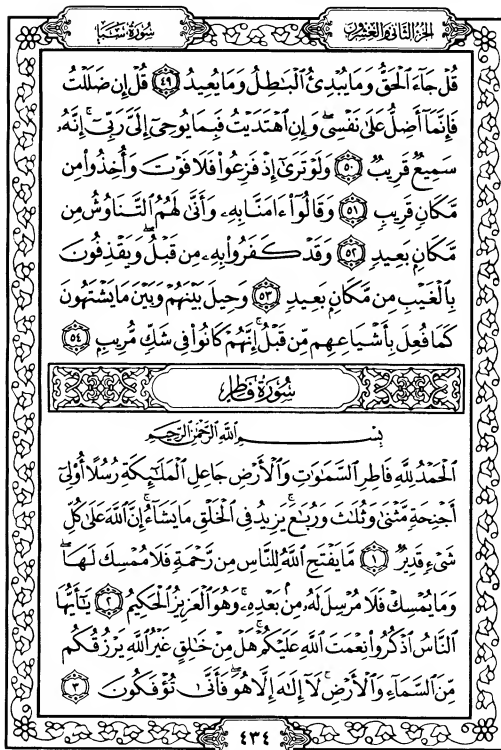 سُورَةُ سَبَإٍ
الجُزْءُ الثَّانِى وَالعِشْرُونَ
قُلْ جَآءَ ٱلْحَقُّ وَمَا يُبْدِئُ ٱلْبَٰطِلُ وَمَا يُعِيدُ ٤٩ قُلْ إِن ضَلَلْتُ
فَإِنَّمَآ أَضِلُّ عَلَىٰ نَفْسِى ۖ وَإِنِ ٱهْتَدَيْتُ فَبِمَا يُوحِىٓ إِلَىَّ رَبِّىٓ ۚ إِنَّهُۥ
سَمِيعٌ قَرِيبٌ ٥٠ وَلَوْ تَرَىٰٓ إِذْ فَزِعُوا۟ فَلَا فَوْتَ وَأُخِذُوا۟ مِن
مَّكَانٍ قَرِيبٍ ٥١ وَقَالُوٓا۟ ءَامَنَّا بِهِۦ وَأَنَّىٰ لَهُمُ ٱلتَّنَاوُشُ مِن
مَّكَانٍۭ بَعِيدٍ ٥٢ وَقَدْ كَفَرُوا۟ بِهِۦ مِن قَبْلُ ۖ وَيَقْذِفُونَ
بِٱلْغَيْبِ مِن مَّكَانٍۭ بَعِيدٍ ٥٣ وَحِيلَ بَيْنَهُمْ وَبَيْنَ مَا يَشْتَهُونَ
كَمَا فُعِلَ بِأَشْيَاعِهِم مِّن قَبْلُ ۚ إِنَّهُمْ كَانُوا۟ فِى شَكٍّ مُّرِيبٍۭ ٥٤
سُورَةُ فَاطِرٍ
بِسْمِ ٱللَّهِ ٱلرَّحْمَٰنِ ٱلرَّحِيمِ
ٱلْحَمْدُ لِلَّهِ فَاطِرِ ٱلسَّمَٰوَٰتِ وَٱلْأَرْضِ جَاعِلِ ٱلْمَلَٰٓئِكَةِ رُسُلًا أُو۟لِىٓ
أَجْنِحَةٍ مَّثْنَىٰ وَثُلَٰثَ وَرُبَٰعَ ۚ يَزِيدُ فِى ٱلْخَلْقِ مَا يَشَآءُ ۚ إِنَّ ٱللَّهَ عَلَىٰ كُلِّ
شَىْءٍ قَدِيرٌ ١ مَّا يَفْتَحِ ٱللَّهُ لِلنَّاسِ مِن رَّحْمَةٍ فَلَا مُمْسِكَ لَهَا ۖ
وَمَا يُمْسِكْ فَلَا مُرْسِلَ لَهُۥ مِنۢ بَعْدِهِۦ ۚ وَهُوَ ٱلْعَزِيزُ ٱلْحَكِيمُ ٢ يَٰٓأَيُّهَا
ٱلنَّاسُ ٱذْكُرُوا۟ نِعْمَتَ ٱللَّهِ عَلَيْكُمْ ۚ هَلْ مِنْ خَٰلِقٍ غَيْرُ ٱللَّهِ يَرْزُقُكُم
مِّنَ ٱلسَّمَآءِ وَٱلْأَرْضِ ۚ لَآ إِلَٰهَ إِلَّا هُوَ ۖ فَأَنَّىٰ تُؤْفَكُونَ ٣
٤٣٤